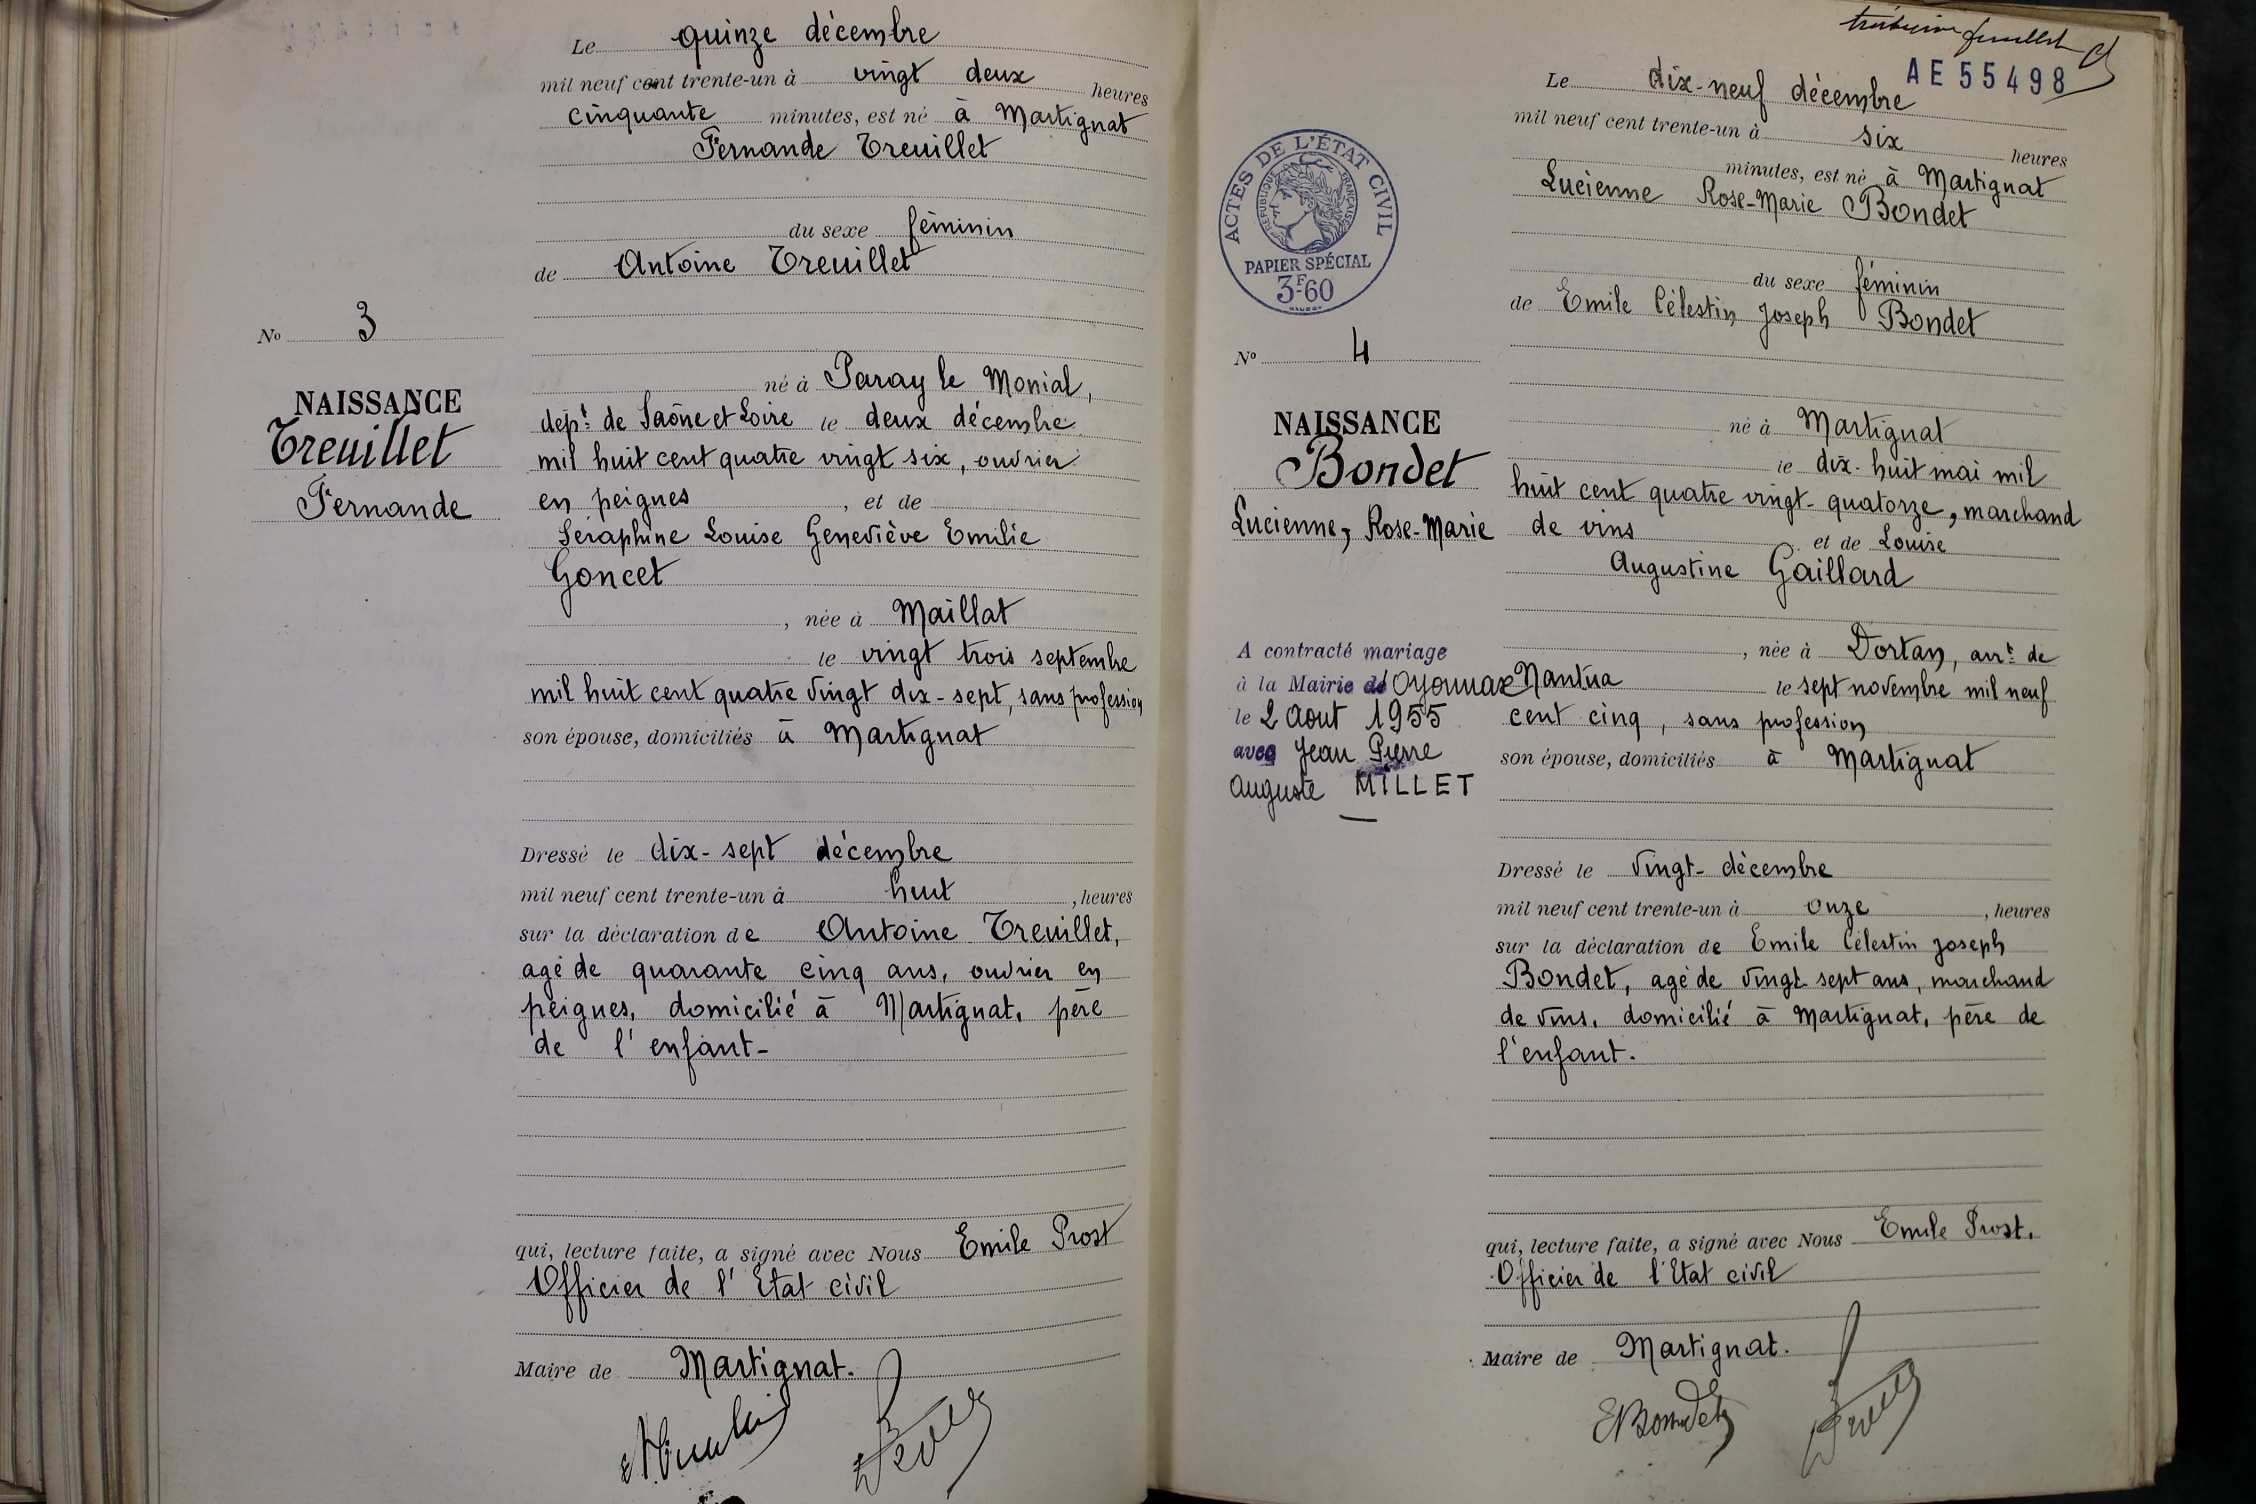 Le quinze décembre
mil neuf cent trente-un à vingt deux heures
cinquante minutes, est né à Martignat
Fernande Treuillet
du sexe féminin
de Antoine Treuillet
No 3
NAISSANCE
Treuillet
Fernande
né à Paray le Monial,
dépt de Saône et Loire le deux décembre
mil huit cent quatre vingt six, ouvrier
en peignes, et de
Séraphine Louise Geneviève Emilie
Goncet
, née à Maillat
le vingt trois septembre
mil huit cent quatre vingt dix-sept, sans profession
son épouse, domiciliés à Martignat
Dressé le dix-sept décembre
mil neuf cent trente-un à huit, heures
sur la déclaration de Antoine Treuillet,
agé de quarante cinq ans, ouvrier en
peignes, domicilié à Martignat, père
de l'enfant-
qui, lecture faite, a signé avec Nous Emile Prost
Officier de l'Etat civil
Maire de Martignat.
feuillet
AE55498
Le dix-neuf décembre
mil neuf cent trente-un à six heures
minutes, est né à Martignat
Lucienne Rose-Marie Bondet
du sexe féminin
de Emile Célestin Joseph Bondet
ACTES DE L'ÉTAT CIVIL
RÉPUBLIQUE FRANÇAISE
PAPIER SPÉCIAL
3F60
No 4
NAISSANCE
Bondet
Lucienne, Rose-Marie
A contracté mariage
à la Mairie d'Oyonnax
le 2 Aout 1955
avec Jean Pierre
Auguste MILLET
né à Martignat
le dix-huit mai mil
huit cent quatre vingt-quatorze, marchand
de vins et de Louise
Augustine Gaillard
, née à Dortan, arrt de
Nantua le sept novembre mil neuf
cent cinq, sans profession
son épouse, domiciliés à Martignat
Dressé le vingt-décembre
mil neuf cent trente-un à onze, heures
sur la déclaration de Emile Célestin Joseph
Bondet, agé de vingt sept ans, marchand
de vins, domicilié à Martignat, père de
l'enfant.
qui, lecture faite, a signé avec Nous Emile Prost.
Officier de l'Etat civil
Maire de Martignat.
EBondet